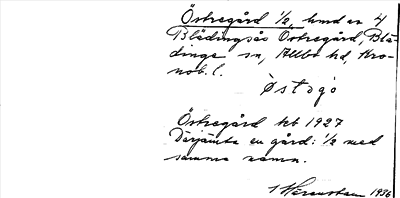 Östregård 1/2, hmd av 4
Blädingsås Östregård, Blä-
dinge sn, Allbo hd, Kro-
nob. l.
Östogö
Östregård tkt 1927
Därjämte en gård: 1/2 med
samma namn.
1936